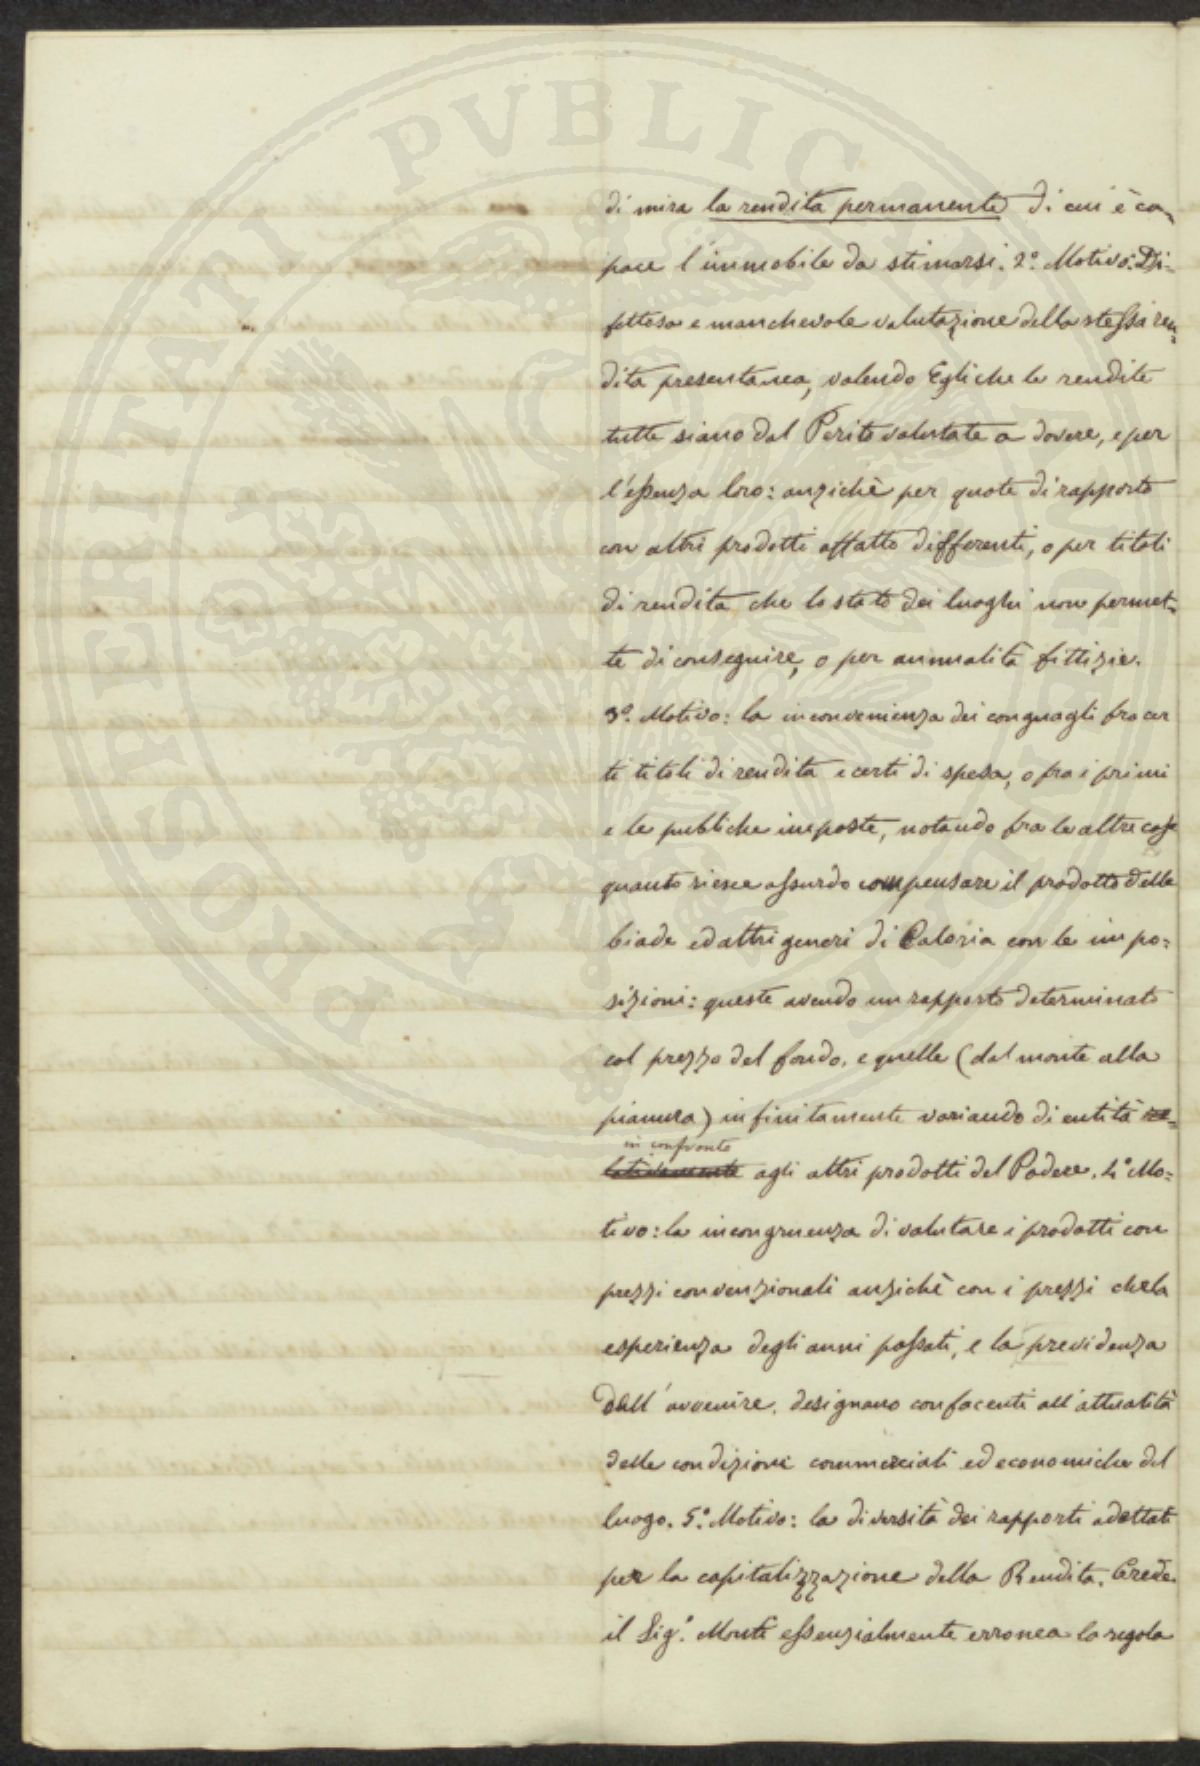 di mira la rendita permanente di cui è ca-
pace l'immobile da stimarsi. 2.º Motivo: Di-
fettosa e manchevole valutazione della stessa ren-
dita presentanea, volendo Egli che le rendite
tutte siano dal Perito valutate a dovere, e per
l'essenza loro: anzichè per quote di rapporto
con altri prodotti affatto differenti, o per titoli
di rendita che lo stato dei luoghi non permet-
te di conseguire, o per annualità fittizie.
3.º Motivo: la inconvenienza dei conguagli fra cer
ti titoli di rendita e certi di spesa, o fra i primi
e le pubbliche imposte, notando fra le altre cose
quanto riesce assurdo compensare il prodotto delle
biade ed altri generi di Caloria con le impo=
sizioni: queste avendo un rapporto determinato
col prezzo del fondo, e quelle (dal monte alla
pianura) infinitamente variando di entità re-
in confronto
lativamente agli altri prodotti del Podere. 4.º Mo=
tivo: la incongruenza di valutare i prodotti con
prezzi convenzionali anzichè con i prezzi che la
esperienza degli anni passati, e la previdenza
dell'avvenire, designano confacenti all'attualità
delle condizioni commerciali ed economiche del
luogo. 5.º Motivo: la diversità dei rapporti adottati
per la capitalizzazione della Rendita. Crede
il Sig.r Monti essenzialmente erronea la regola
PROSPERITATI PUBLICAE AUGENDAE